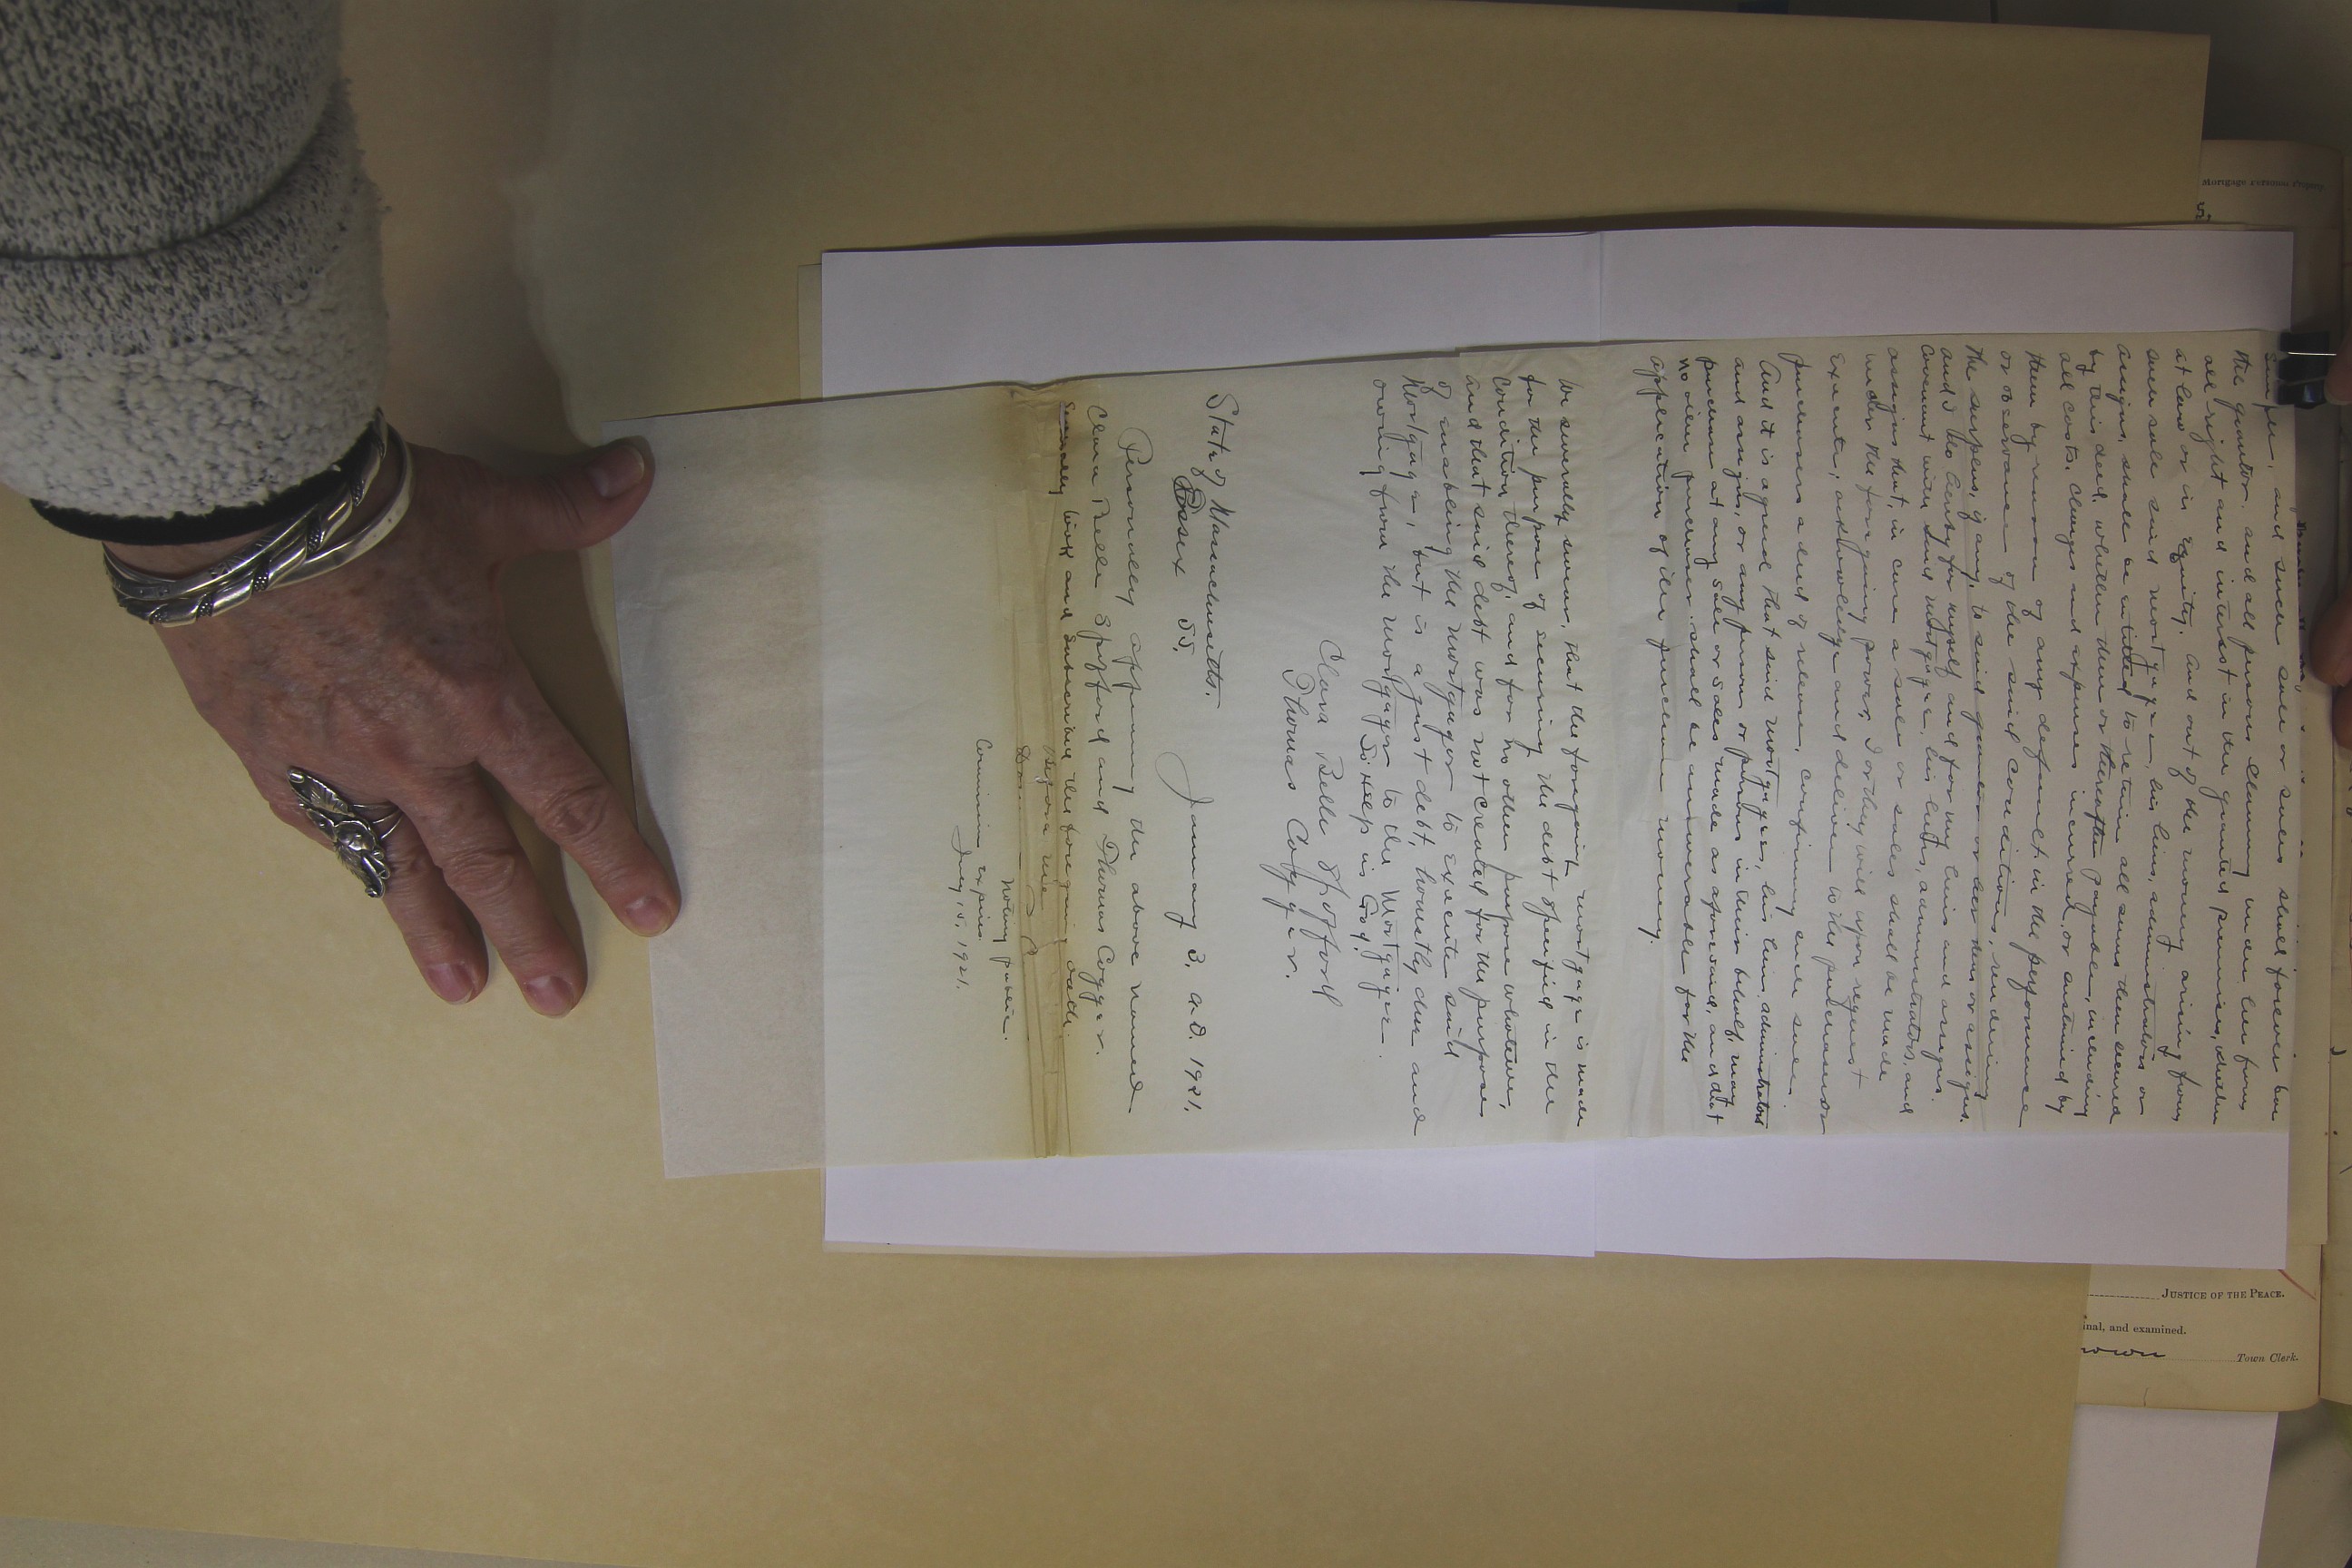 and such sale or sales shall forever bar
the grantor, and all persons claiming under her from
all right and interest in the granted premises, whether
at law or in equity. And out of the money arising from
such sale said mortgagee, his heirs, administrators or
assigns, shall be entitled to retain all sums then secured
by this deed, whether then or thereafter payable, including
all costs, charges and expenses incurred, or sustained by
them by reason of any default in the performance
or observance of the said conditions, rendering
the surplus, if any, to said grantor or her heirs or assigns.
and I do hereby for myself and for my heirs and assigns
covenant with said mortgagee, his heirs, administrators, and
assigns that, in case a sale or sales shall be made
under the foregoing power, I or they will upon request
execute, acknowledge and deliver to the purchaser or
purchasers a deed of release, confirming such sale.
And it is agreed that said mortgagee, his heirs, administrators
and assigns, or any person or persons in their behalf, may
purchase at any sale or sales made as aforesaid, and that
no other purchaser shall be answerable for the
application of the purchase money.
We severally swear, that the foregoing mortgage is made
for the purpose of securing the debt specified in the
condition thereof, and for no other purpose whatever,
and that said debt was not created for the purpose
of enabling the mortgagor to execute said
Mortgage, but is a just debt, honestly due and
owing from the mortgagor to the Mortgagee.
So Help us God.
Clara Belle Spofford
Thomas Cogger.
State of Massachusetts.
Essex SS. January 3, A.D. 1921.
Personally appearing the above named
Clara Belle Spofford and Thomas Coggar.
Severally took and subscribed the foregoing oath.
Before me
Notary public.
Commission expires
1921.
Mortgage Personal Property
5,
JUSTICE OF THE PEACE.
inal, and examined.
Town Clerk.